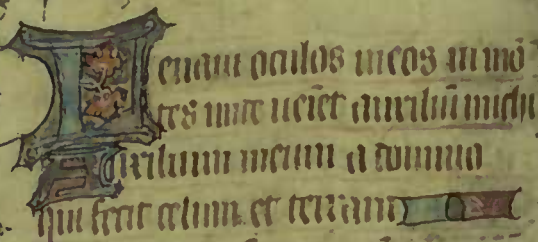 Leuaui oculos meos in mō
tes unde ueiet auxiliū michi
Auxilium meum a domino
qui fecit celum et terram